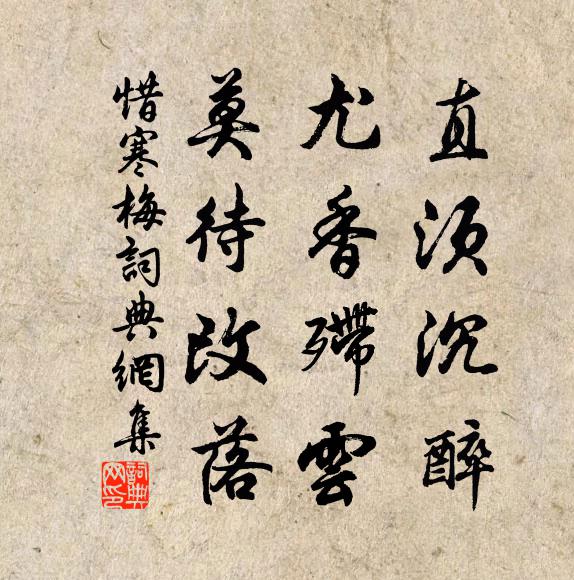 直須沉醉
尤香殢雲
莫待改落
惜寒梅詞典網集
詞典网印